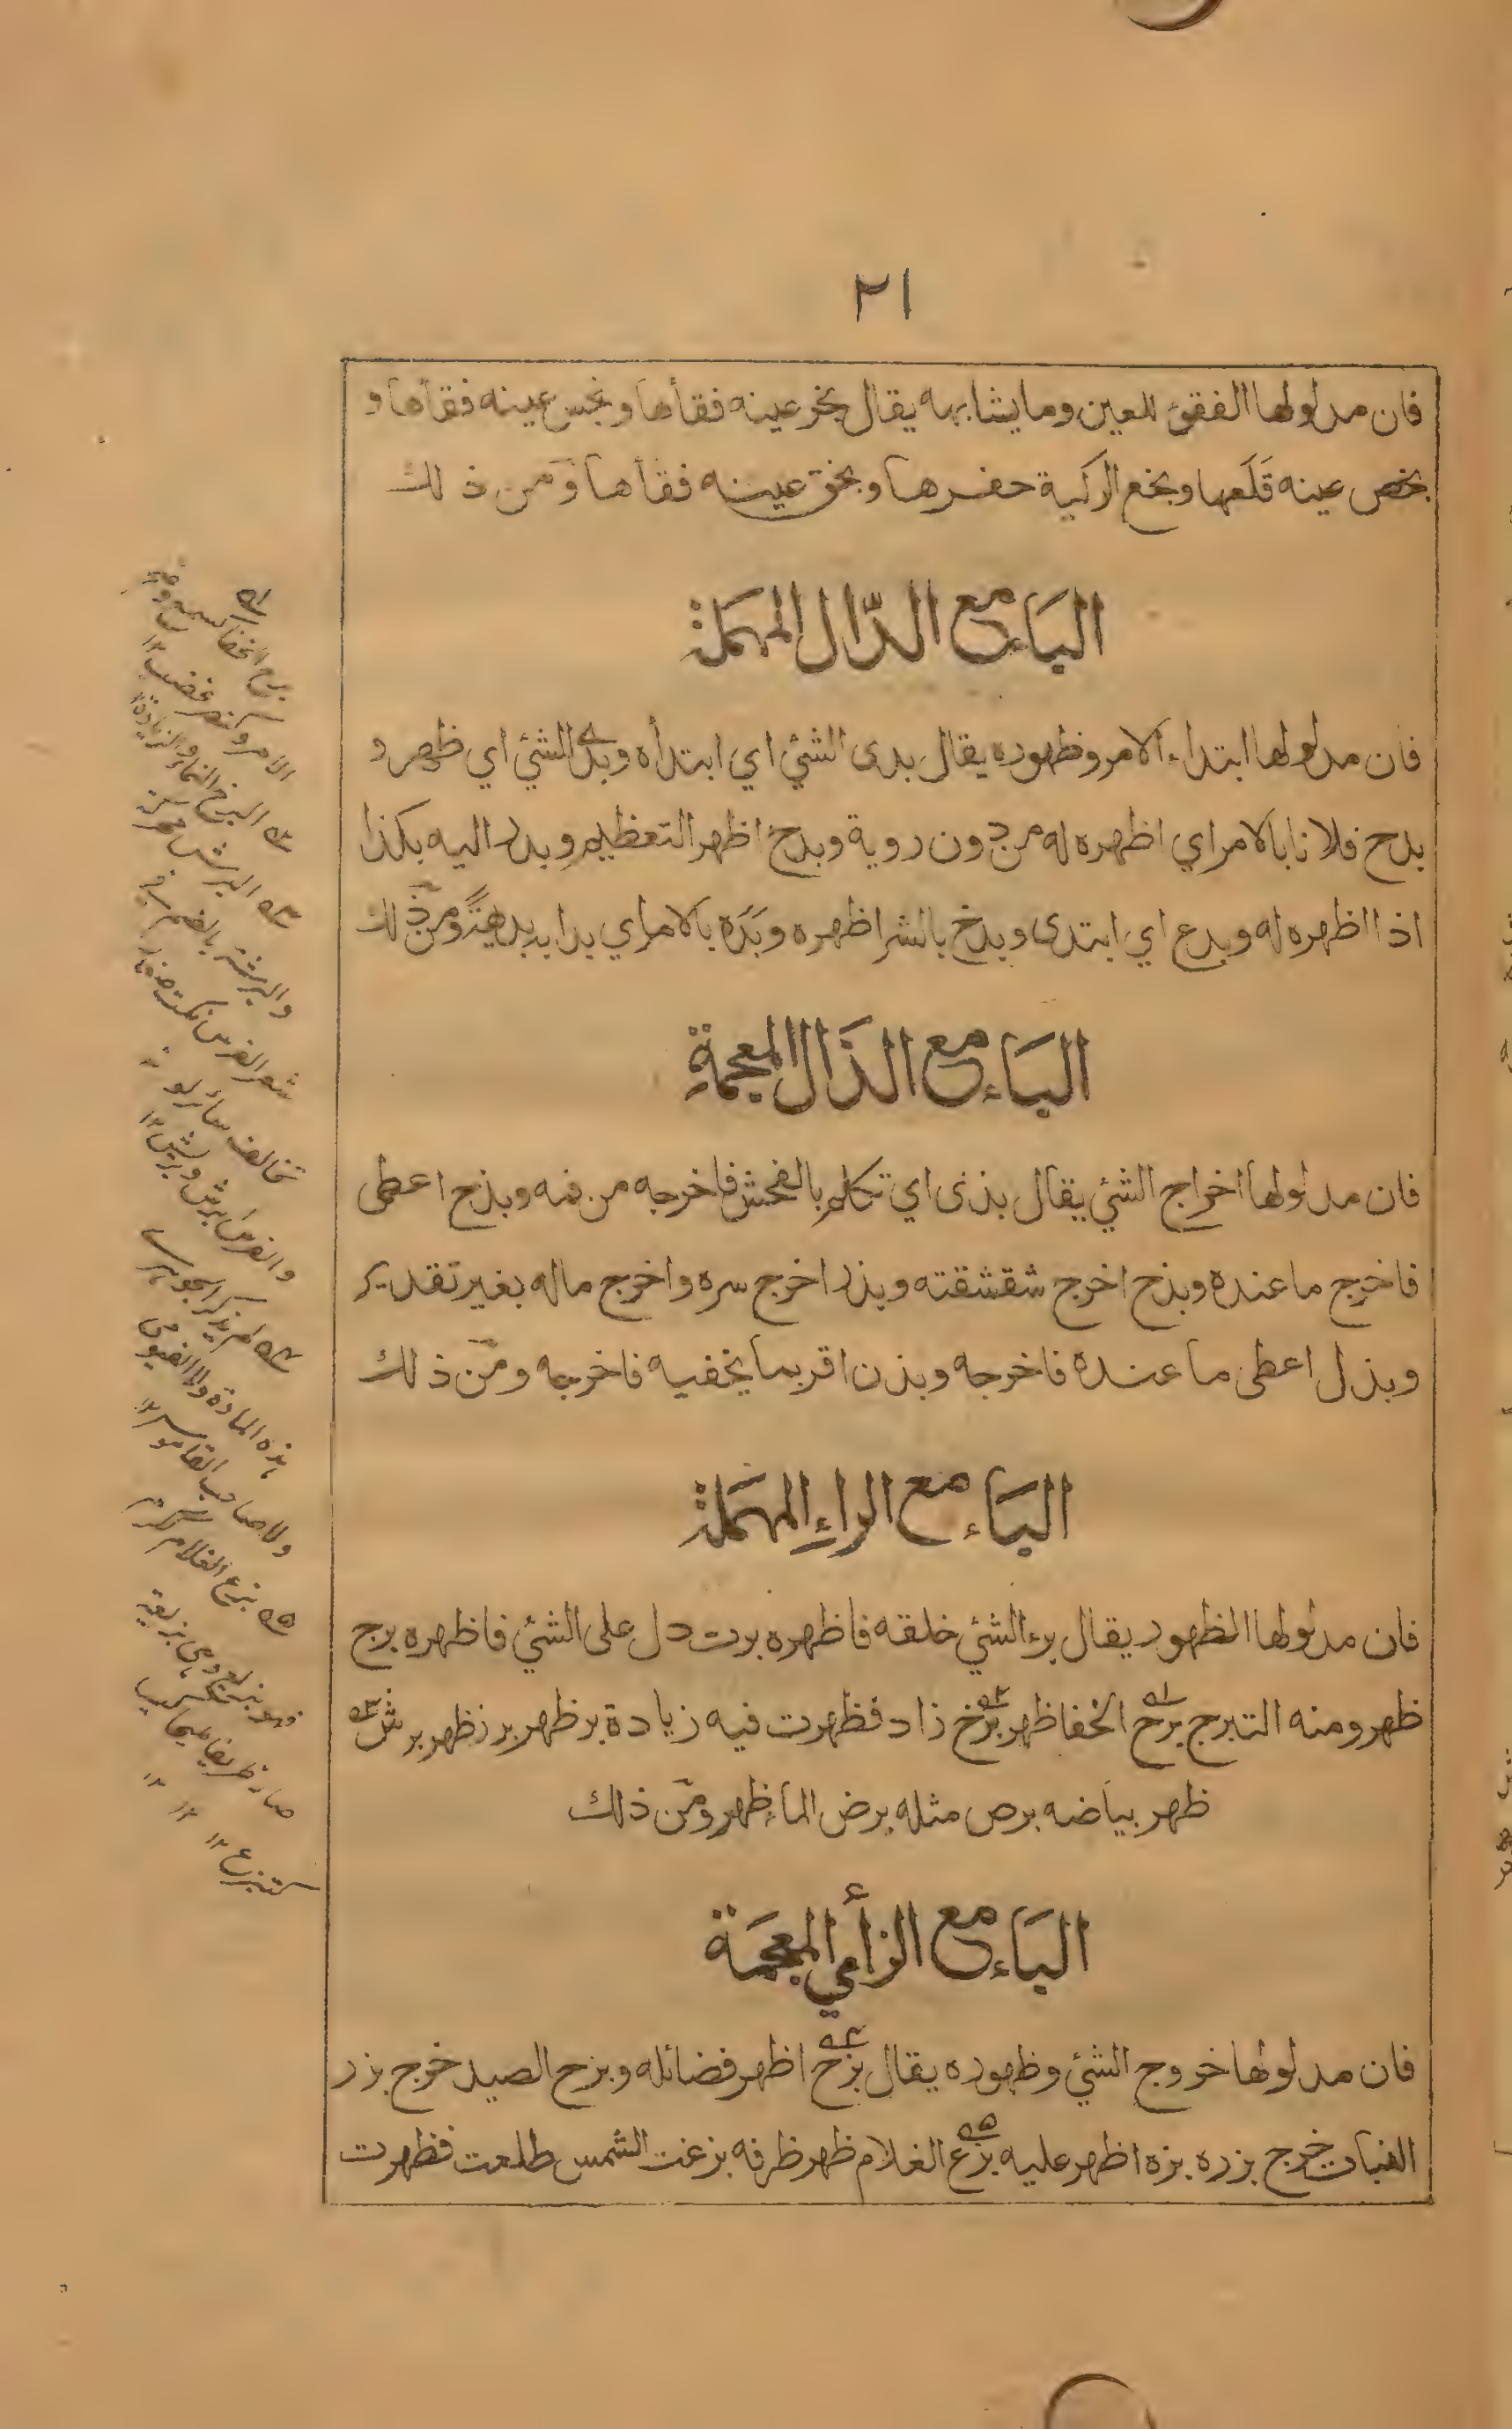 ٢١
فان مدلولها الفقئ للعين ومايشابهه يقال بخر عينه فقأها وبخس عينه فقأها و
بخص عينه قَلَعها وبخع الركية حفرها وبخق عينه فقأها ومن ذلك
البَاء مع الدّال المهمَلة
فان مدلولها ابتداء الامر وظهوره يقال بدى الشئ اي ابتدأه وبدا الشئ اي ظهر و
بدح فلانا بالامر اي اظهره له من دون روية وبدخ اظهر التعظيم وبدد اليه بكذا
اذا اظهره له وبدع اي ابتدى وبدخ بالشر اظهره وبَدَه بالامر اي بدا به بديهيةً ومن ذلك
البَاء مع الذَال المعجمةِ
فان مدلولها اخراج الشئ يقال بذى اي تكلم بالفحش فاخرجه من فمه وبذج اعطى
فاخرج ماعنده وبذخ اخرج شقشقته وبذر اخرج سره واخرج ماله بغير تقدير
وبذل اعطى ماعنده فاخرجه وبذن اقر بما يخفيه فاخرجه ومن ذلك
البَاء مع الراءِ المهمَلة
فان مدلولها الظهور يقال برء الشئ خلقه فاظهره برت دل على الشئ فاظهره برج
ظهر ومنه التبرج برح الخفا ظهر برخ زاد فظهرت فيه زيادة بر ظهر برز ظهر برش
ظهر بياضه برص مثله برض الماء ظهر ومن ذلك
البَاء مع الزأي المعجمَة
فان مدلولها خروج الشئ وظهوره يقال بزح اظهر فضائله وبزح الصيد خرج بزر
النبات خرج بزره بزه اظهر عليه بزع الغلام ظهر ظرفه بزغت الشمس طلعت فظهرت
برح الخفا كسمع
الامر وكنصر غضب ١٢
البرخ النماء والزيادة ١٢
البرش محركة
والبرشة بالضم في
شعر الفرس نكت صغار
تخالف سائر لونه
والفرس ابرش وبريش ١٢
لم يذكر الجوهري
هذه المادة ولا الفيومي
ولا صاحب القاموس ١٢
بزع الغلام ككرم
فهو بزيع وهي بزيعة
صار ظريفا
كتبزع ١٢